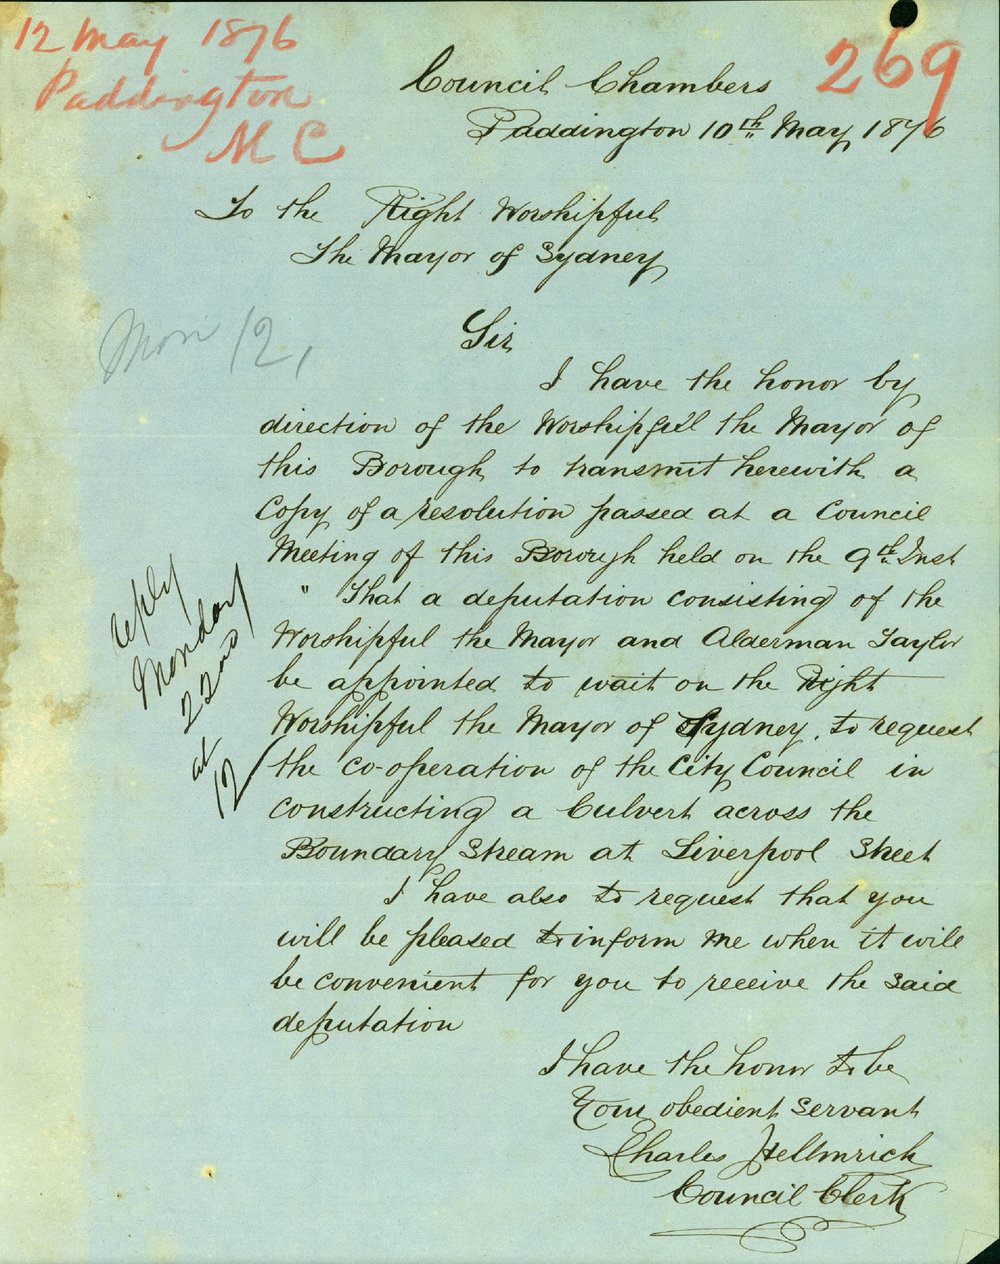 12 May 1876
Paddington
M C
269
Council Chambers
Paddington 10th May 1876
To the Right Worshipful
The Mayor of Sydney
Mon 12,
Sir
I have the honor by
direction of the Worshipful the Mayor of
this Borough to transmit herewith a
Copy of a resolution passed at a Council
Meeting of this Borough held on the 9th Inst
" That a deputation consisting of the
Worshipful the Mayor and Alderman Taylor
be appointed to wait on the Right
Worshipful the Mayor of Sydney, to request
the co-operation of the City Council in
constructing a Culvert across the
Boundary Stream at Liverpool Street
I have also to request that you
will be pleased to inform me when it will
be convenient for you to receive the said
deputation
reply
Monday
22nd
at
12
I have the honor to be
Your obedient servant
Charles Hellmrich
Council Clerk